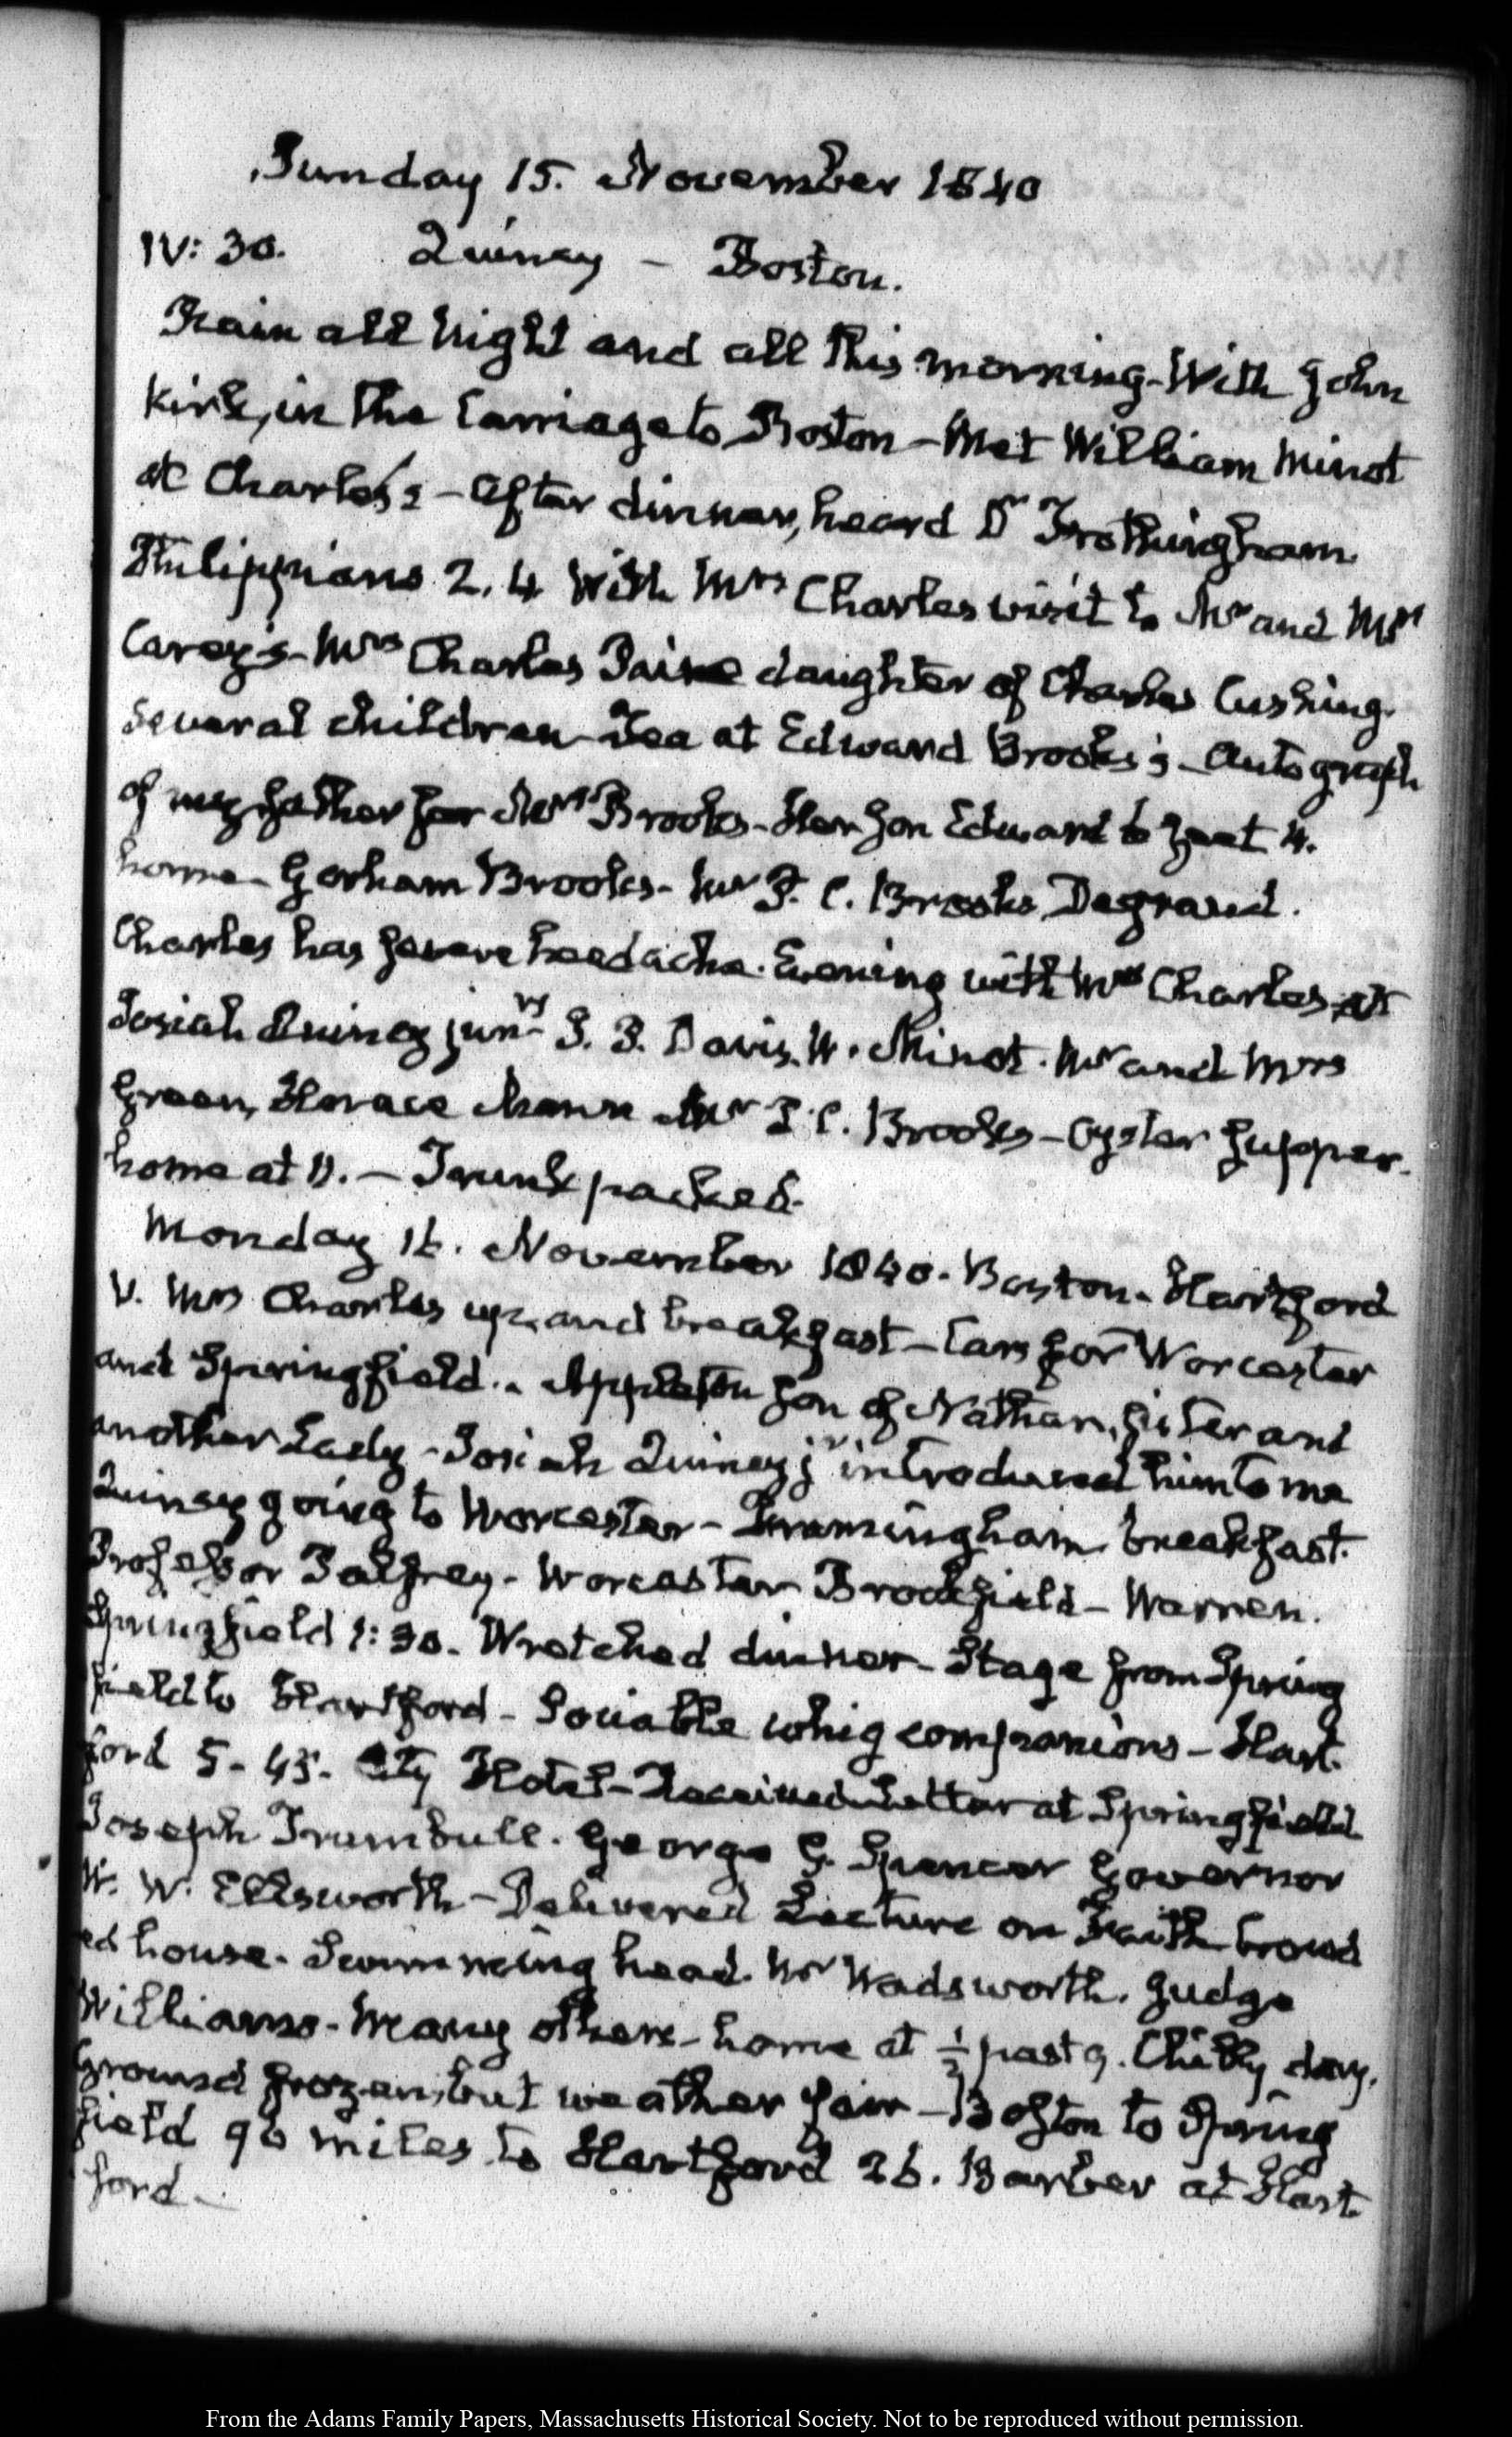 Sunday 15. November 1840
IV: 30. Quincy – Boston.
Rain all Night and all this morning. With John
Kirk, in the Carriage to Boston – Met William Minot
at Charles's – After dinner, heard Dr Frothingham
Philippians 2. 4 With Mrs Charles visit to Mr and Mrs
Carey's – Mrs Charles Paine daughter of Charles Cushing.
Several children – Tea at Edward Brooks's – Autograph
of my father for Mrs Brooks – Her Son Edward 6 feet 4.
home – Gorham Brooks – Mr P. C. Brooks Degrand.
Charles has severe headache. Evening with Mrs Charles at
Josiah Quincy junrs J. P. Davis. W. Minot. Mr and Mrs
Green, Horace Mann Mr P. C. Brooks – Oyster Supper.
home at 11. – Trunk packed.
Monday 16. November 1840. Boston – Hartford
V. Mrs Charles up, and breakfast – Cars for Worcester
and Springfield. – Appleton Son of Nathan, sister and
another Lady – Josiah Quincy jr introduced him to me
Quincy going to Worcester – Framingham breakfast.
Professor Palfrey – Worcester Brookfield – Warren.
Springfield 1: 30. Wretched dinner – Stage from Spring
field to Hartford – Sociable whig companions – Hart
ford 5 – 45. City Hotel – Received Letter at Springfield
Joseph Trumbull. George G. Spencer Governor
W. W. Ellsworth – Delivered Lecture on Faith crowd
ed house. Swimming head. Mr Wadsworth. Judge
Williams – Many others – home at ½ past 9. Chilly day,
Ground frozen, but weather fair – Boston to Spring
field 96 miles to Hartford 26. Barber at Hart
ford –
From the Adams Family Papers, Massachusetts Historical Society. Not to be reproduced without permission.